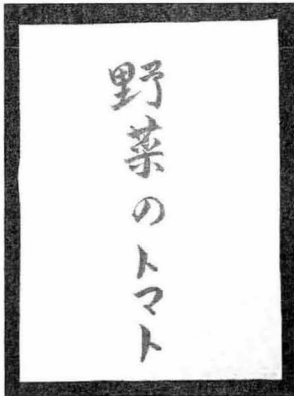 野菜のトマト